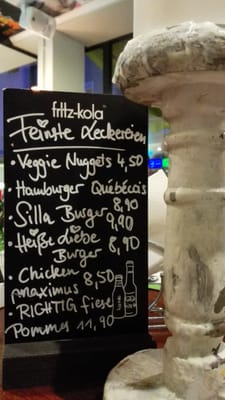 fritz-kola™
Feinste Leckereien
• Veggie Nuggets 4,50
• Hamburger Québécais
8,90
Silla Burger 9,90
• Heiße Liebe
Burger 8,90
• Chicken 8,50
maximus
• RICHTIG fiese
Pommes 11,90